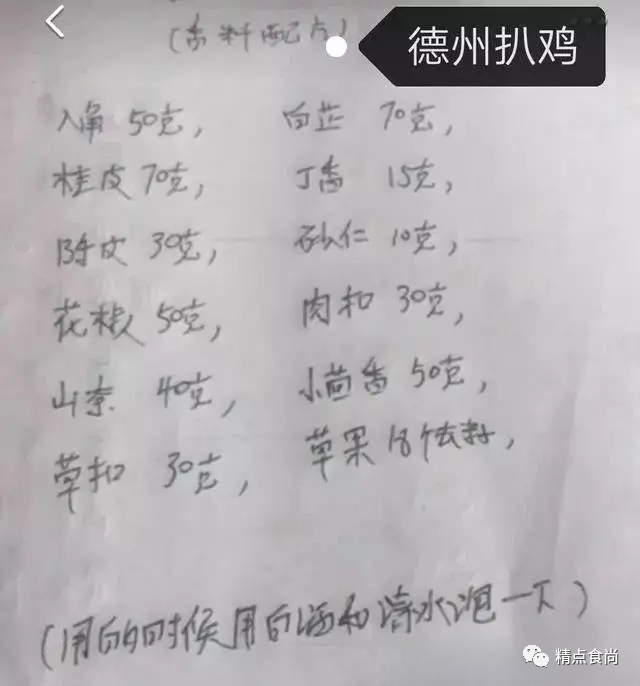 (香料配方)
德州扒鸡
八角 50克, 白芷 70克,
桂皮 70克, 丁香 15克,
陈皮 30克, 砂仁 10克,
花椒 50克, 肉扣 30克,
山奈 40克, 小茴香 50克,
草扣 30克, 草果 18个去籽,
(用的时候用白酒和凉水泡一下)
精点食尚